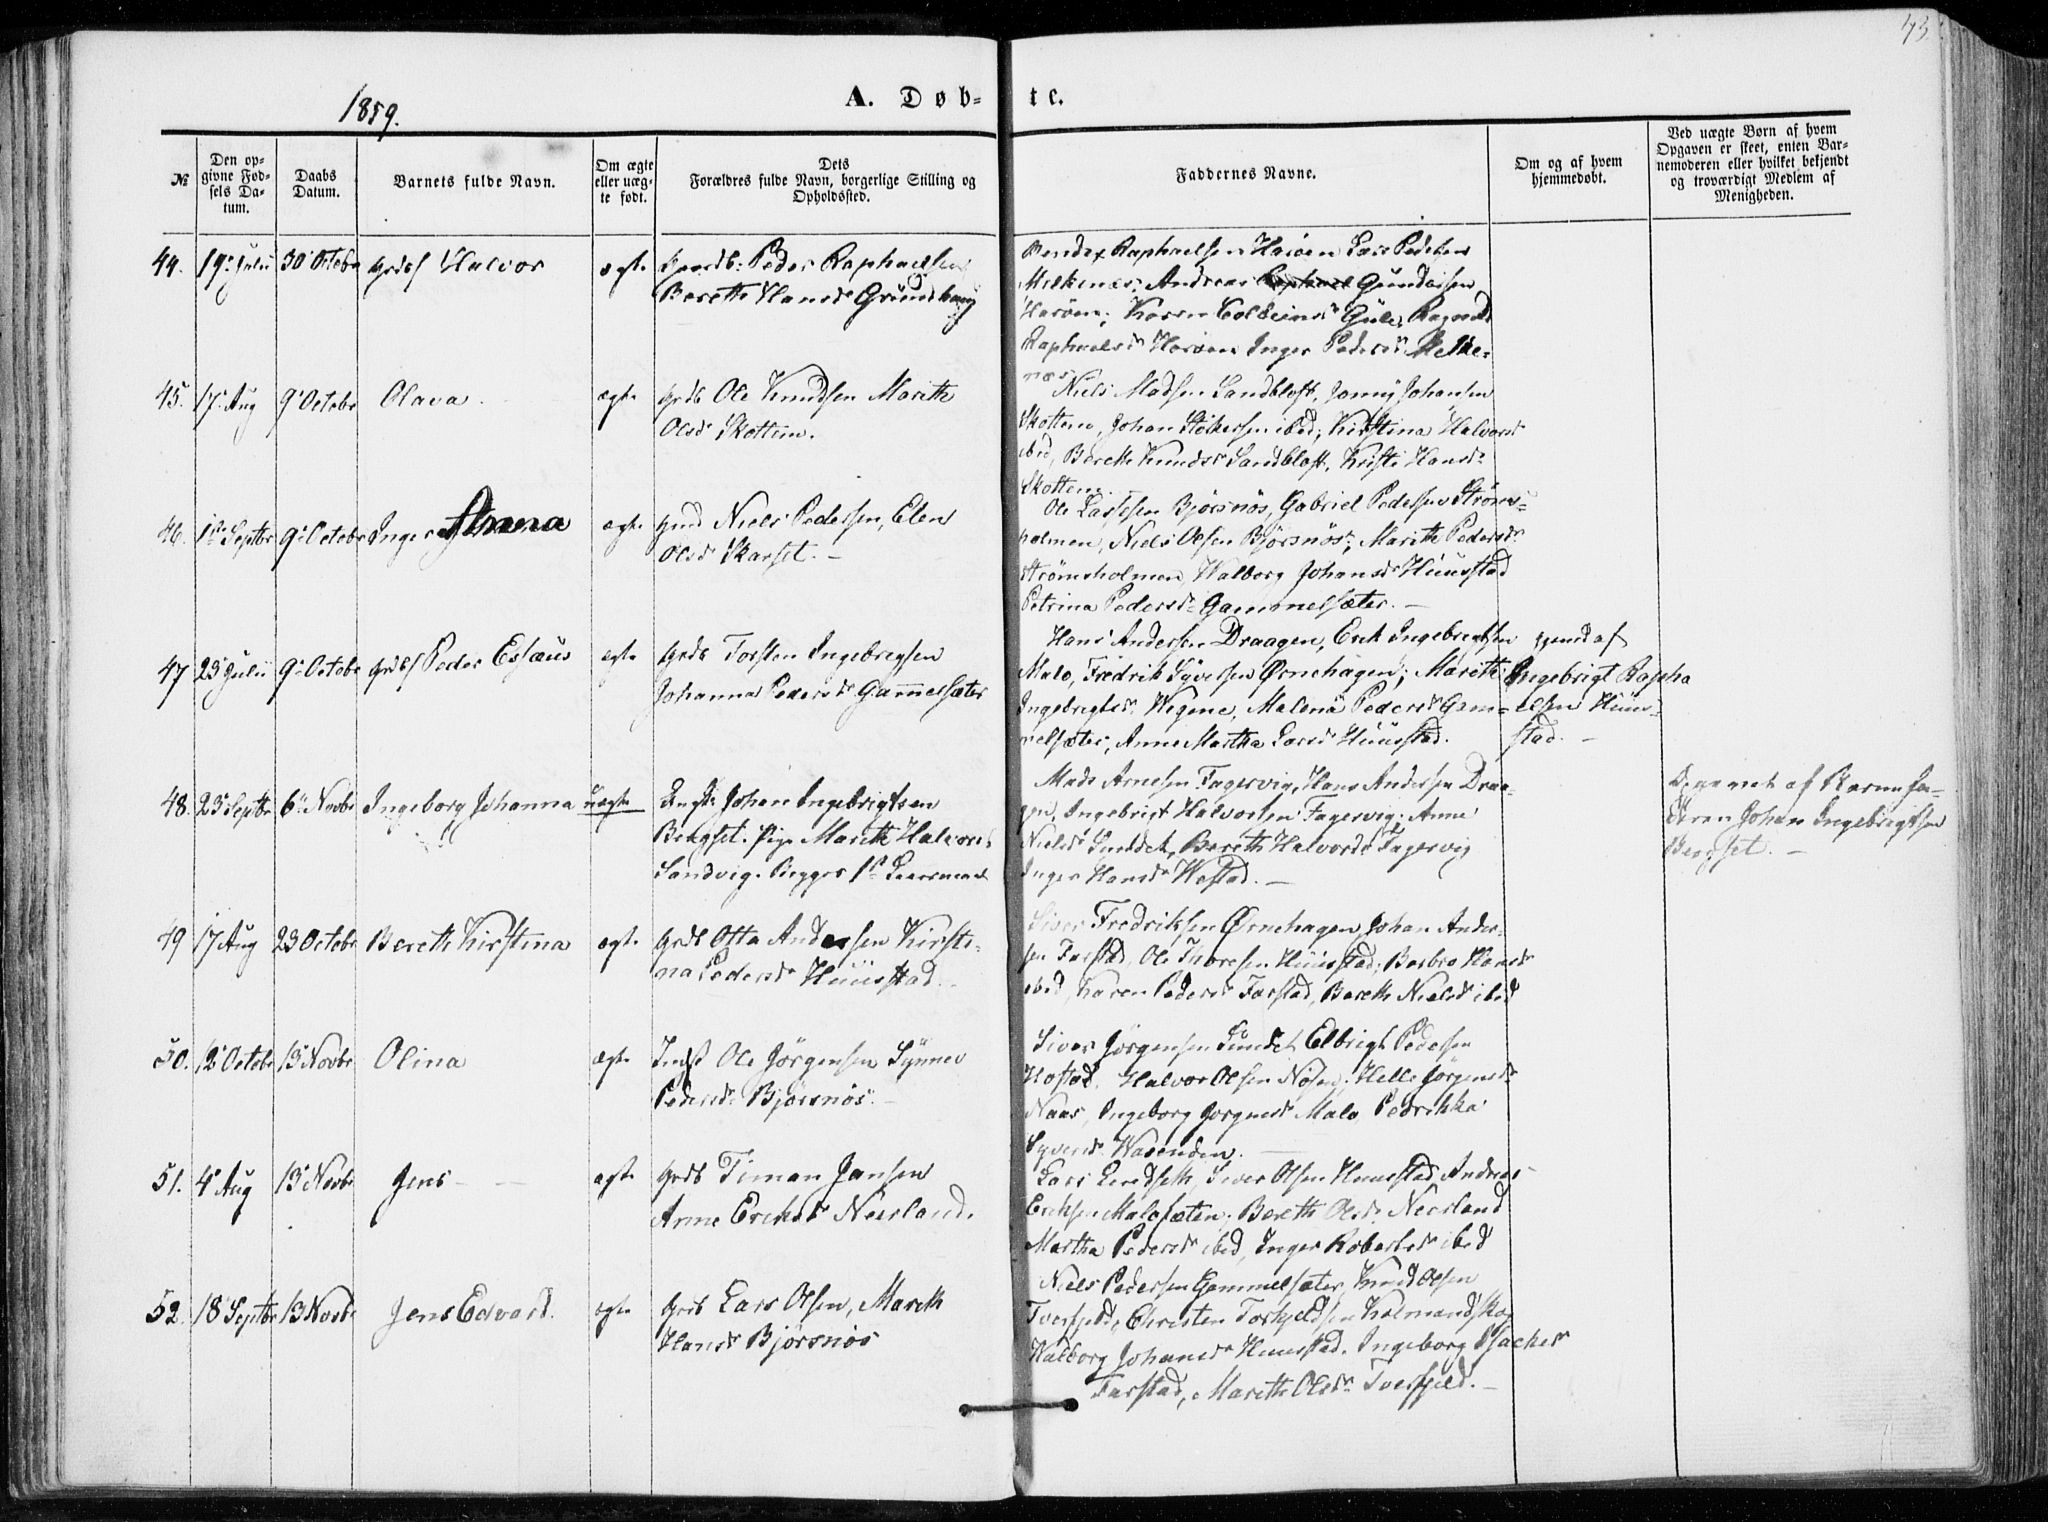 43.
1859.
A. Døb- te.
№
Den op-
givne Fød-
sels Da-
tum.
Daabs
Datum.
Barnets fulde Navn.
Om ægte
eller uæg-
te født.
Dets
Forældres fulde Navn, borgerlige Stilling og
Opholdssted.
Faddernes Navne.
Om og af hvem
hjemmedøbt.
Ved uægte Børn af hvem
Opgaven er skeet, enten Bar-
nemoderen eller hvilket bekjendt
og troværdigt Medlem af
Menigheden.
44. 19 Julii 30 Octobr Halvor ægte Peder Raphaelsen
Bereth Hansdr Grundhaug
Bendix Raphaelsen Harøen Lars Pedersen
Melkenæs; Andreas Gundersen
Harøen; Karen Gule, Ragnild
Raphaelsdr Harøen Inger Pedersdr Melke-
næs
45. 17 Aug 9 Octobr Olava ægte Grdb Ole Knudsen Marith
Olsdr Skottem.
Niels Madsen Sandbloft, Jonny Johansen
Skottem, Johan ibid; Kirstina Halvorsdr
ibid, Bereth Knudsdr Sandbloft, Kirsti Hansdr
Skottem.
46. 1 Septbr 9 Octobr Inger Anna ægte Gmd Niels Pedersen, Elen
Olsdr Skarset. –
Ole Larssen Bjørsnøs, Gabriel Pedersen Strøms-
holmen, Niels Olsen Bjørsnøs; Marith Pedersdr
Strømsholmen, Walborg Johansdr Huustad
Petrina Pedersdr Gammelsæter. –
47 23 Julii 9 Octobr Peder Essæus ægte Grdb Torsten Ingebregsen
Johanna Pedersdr Gammelsæter
Hans Andersen Draagen, Erik Ingebrigtsen
Malo, Fredrik Syversen Ørnehagen; Marith
Ingebrigtsdr Wegene, Malena Pedersdr Gam-
melsæter, Anne Martha Larsdr Huustad.
hjemd af
Ingebrigt Rapha
elsen Huus-
stad. –
48. 23 Septbr 6 Novbr Ingeborg Johanna uægte Johan Ingebrigtsen
Bergset. Pige Marith Halvorsdr
Sandvig.
Mads Arnesen Fagervig, Hans Andersen Draa-
gen, Ingebrigt Halvorsen Fagervig; Anne
Nielsdr Sundet, Bereth Halvorsdr Fagervig
Inger Hansdr Hostad. –
af Barnefa-
deren Johan Ingebrigtsen
Bergset. –
49 17 Aug 23 Octobr Bereth Kirstina ægte Grdb Otto Andersen Kirsti-
na Pedersdr Huustad.
Siver Fredriksen Ørnehagen, Johan Ander-
sen Farstad, Ole Thoresen Huustad; Barbro Hansdr
ibid, Karen Pedersdr Farstad, Bereth Nielsdr ibid
50. 12 Octobr 13 Novbr Olina ægte Indst Ole Jørgensen Synnev
Pedersdr Bjørsnøs. –
Siver Jørgensen Sundet Elbrigt Pedersen
Hostad, Halvor Olsen Nøsen; Helle Jørgensdr
Naas, Ingeborg Jørgensdr Malo, Pedrikka
Syversdr Wasenden.
51. 4 Aug 13 Novbr Jens ægte Grdb Timan Jansen
Anne Eriksdr Neerland.
Lars Lindseth, Siver Olsen Huustad, Andreas
Eriksen Malosæter; Bereth Olsdr Neerland
Martha Pedersdr ibid, Inger Robertsdr ibid
52. 18 Septbr 13 Novbr Jens Edvard. ægte Grdb Lars Olsen, Marith
Hansdr Bjørsnøs
Niels Pedersen Gammelsæter, Knud Olsen
Tverfjeld, Christen Torkjeldsen Kolmandskog
Walborg Johansdr Huustad. Ingeborg
Farstad, Marith Olsdr Tverfjeld. –